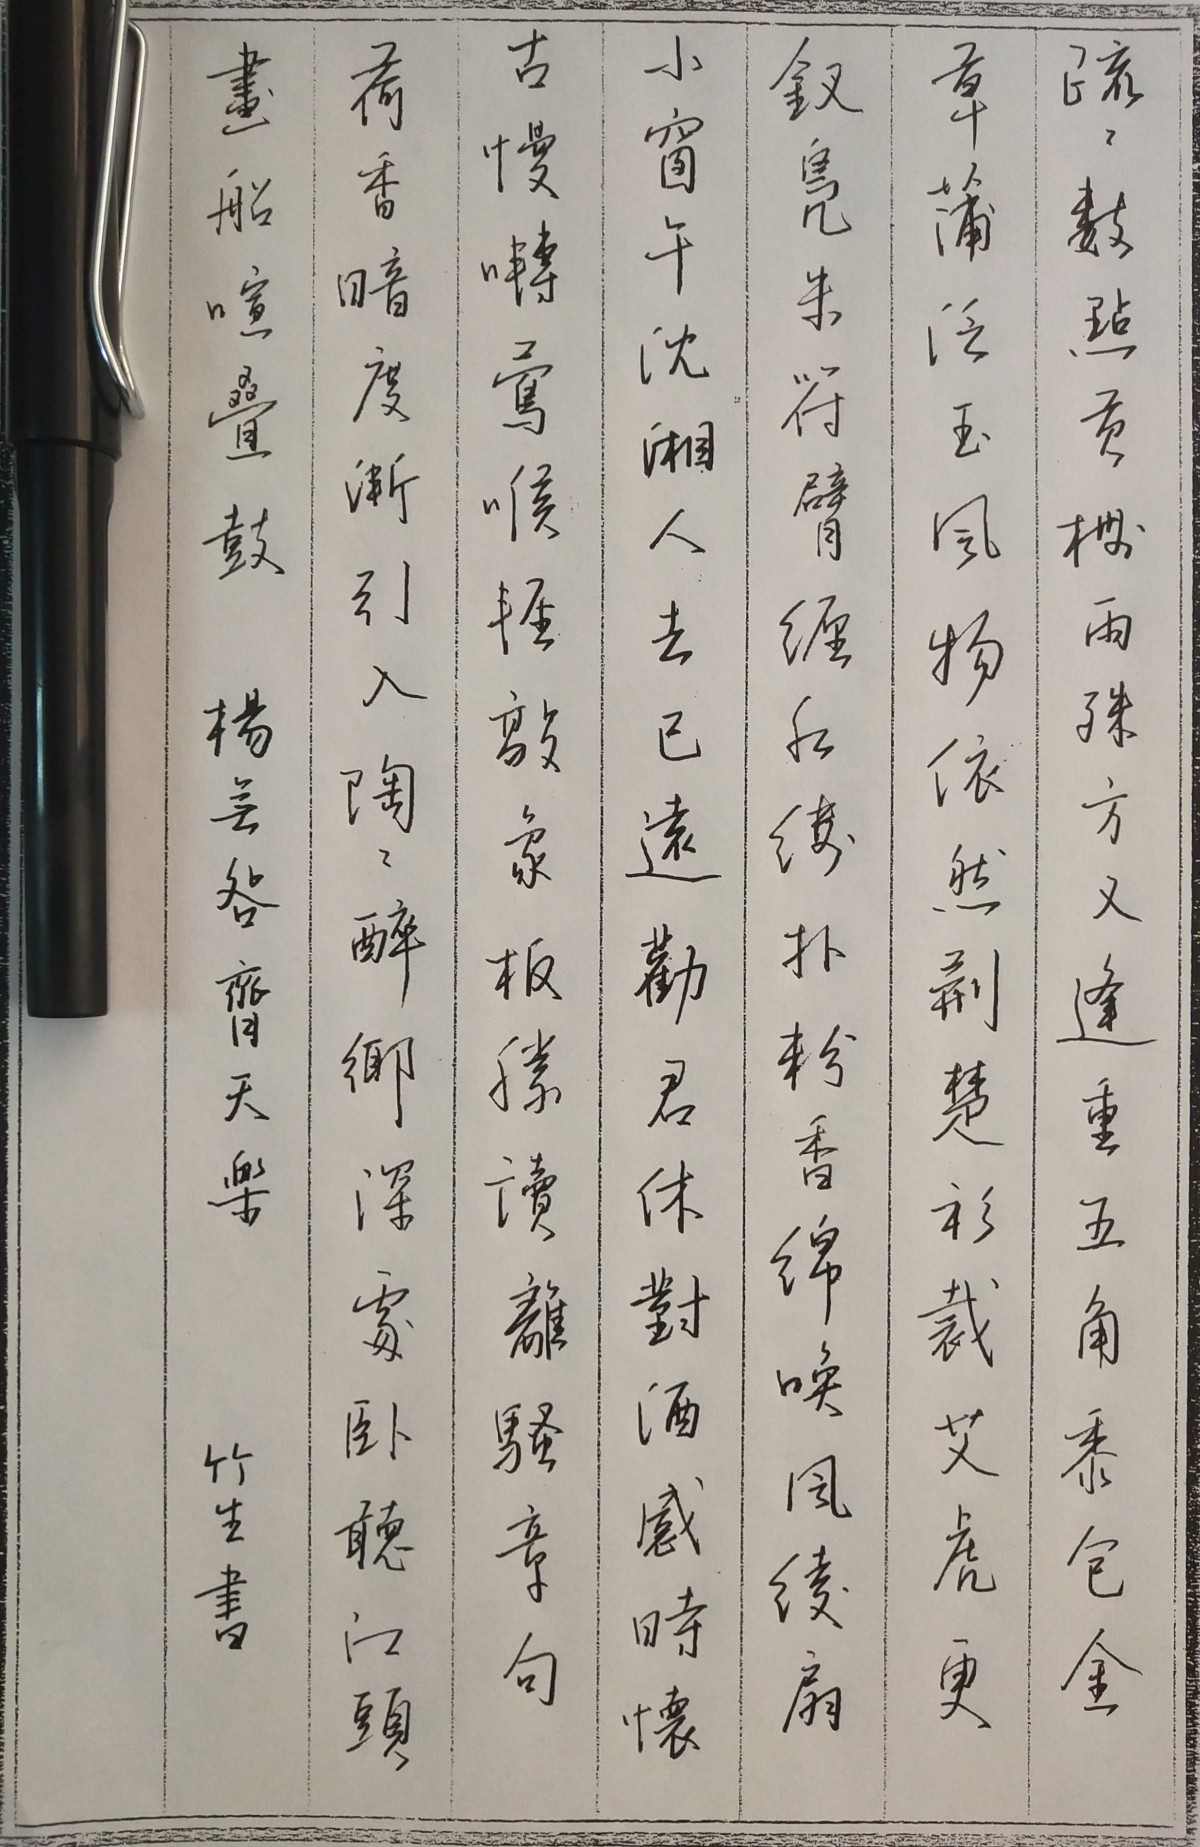 疏〻數點黃梅雨殊方又逢重五角黍包金
草蒲泛玉風物依然荆楚衫裁艾虎更
釵裊朱符臂纏紅縷扑粉香綿喚風綾扇
小窗午沈湘人去已遠勸君休對酒感時懷
古慢囀鶯喉輕敲象板勝讀離騷章句
荷香暗度漸引入陶〻醉鄉深處卧聽江頭
畫船喧疊鼓 楊无咎齊天樂 竹生書